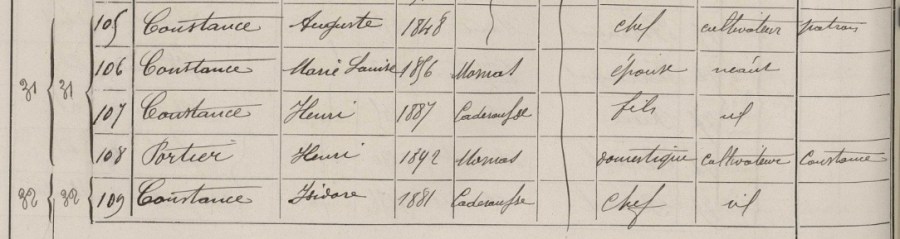 105 Constance Auguste 1848 〃 chef cultivateur patron
31 31 106 Constance Marie Louise 1856 Mornas épouse néant
107 Constance Henri 1887 Caderousse fils id
108 Portier Henri 1892 Mornas domestique cultivateur Constance
32 32 109 Constance Isidore 1881 Caderousse chef id